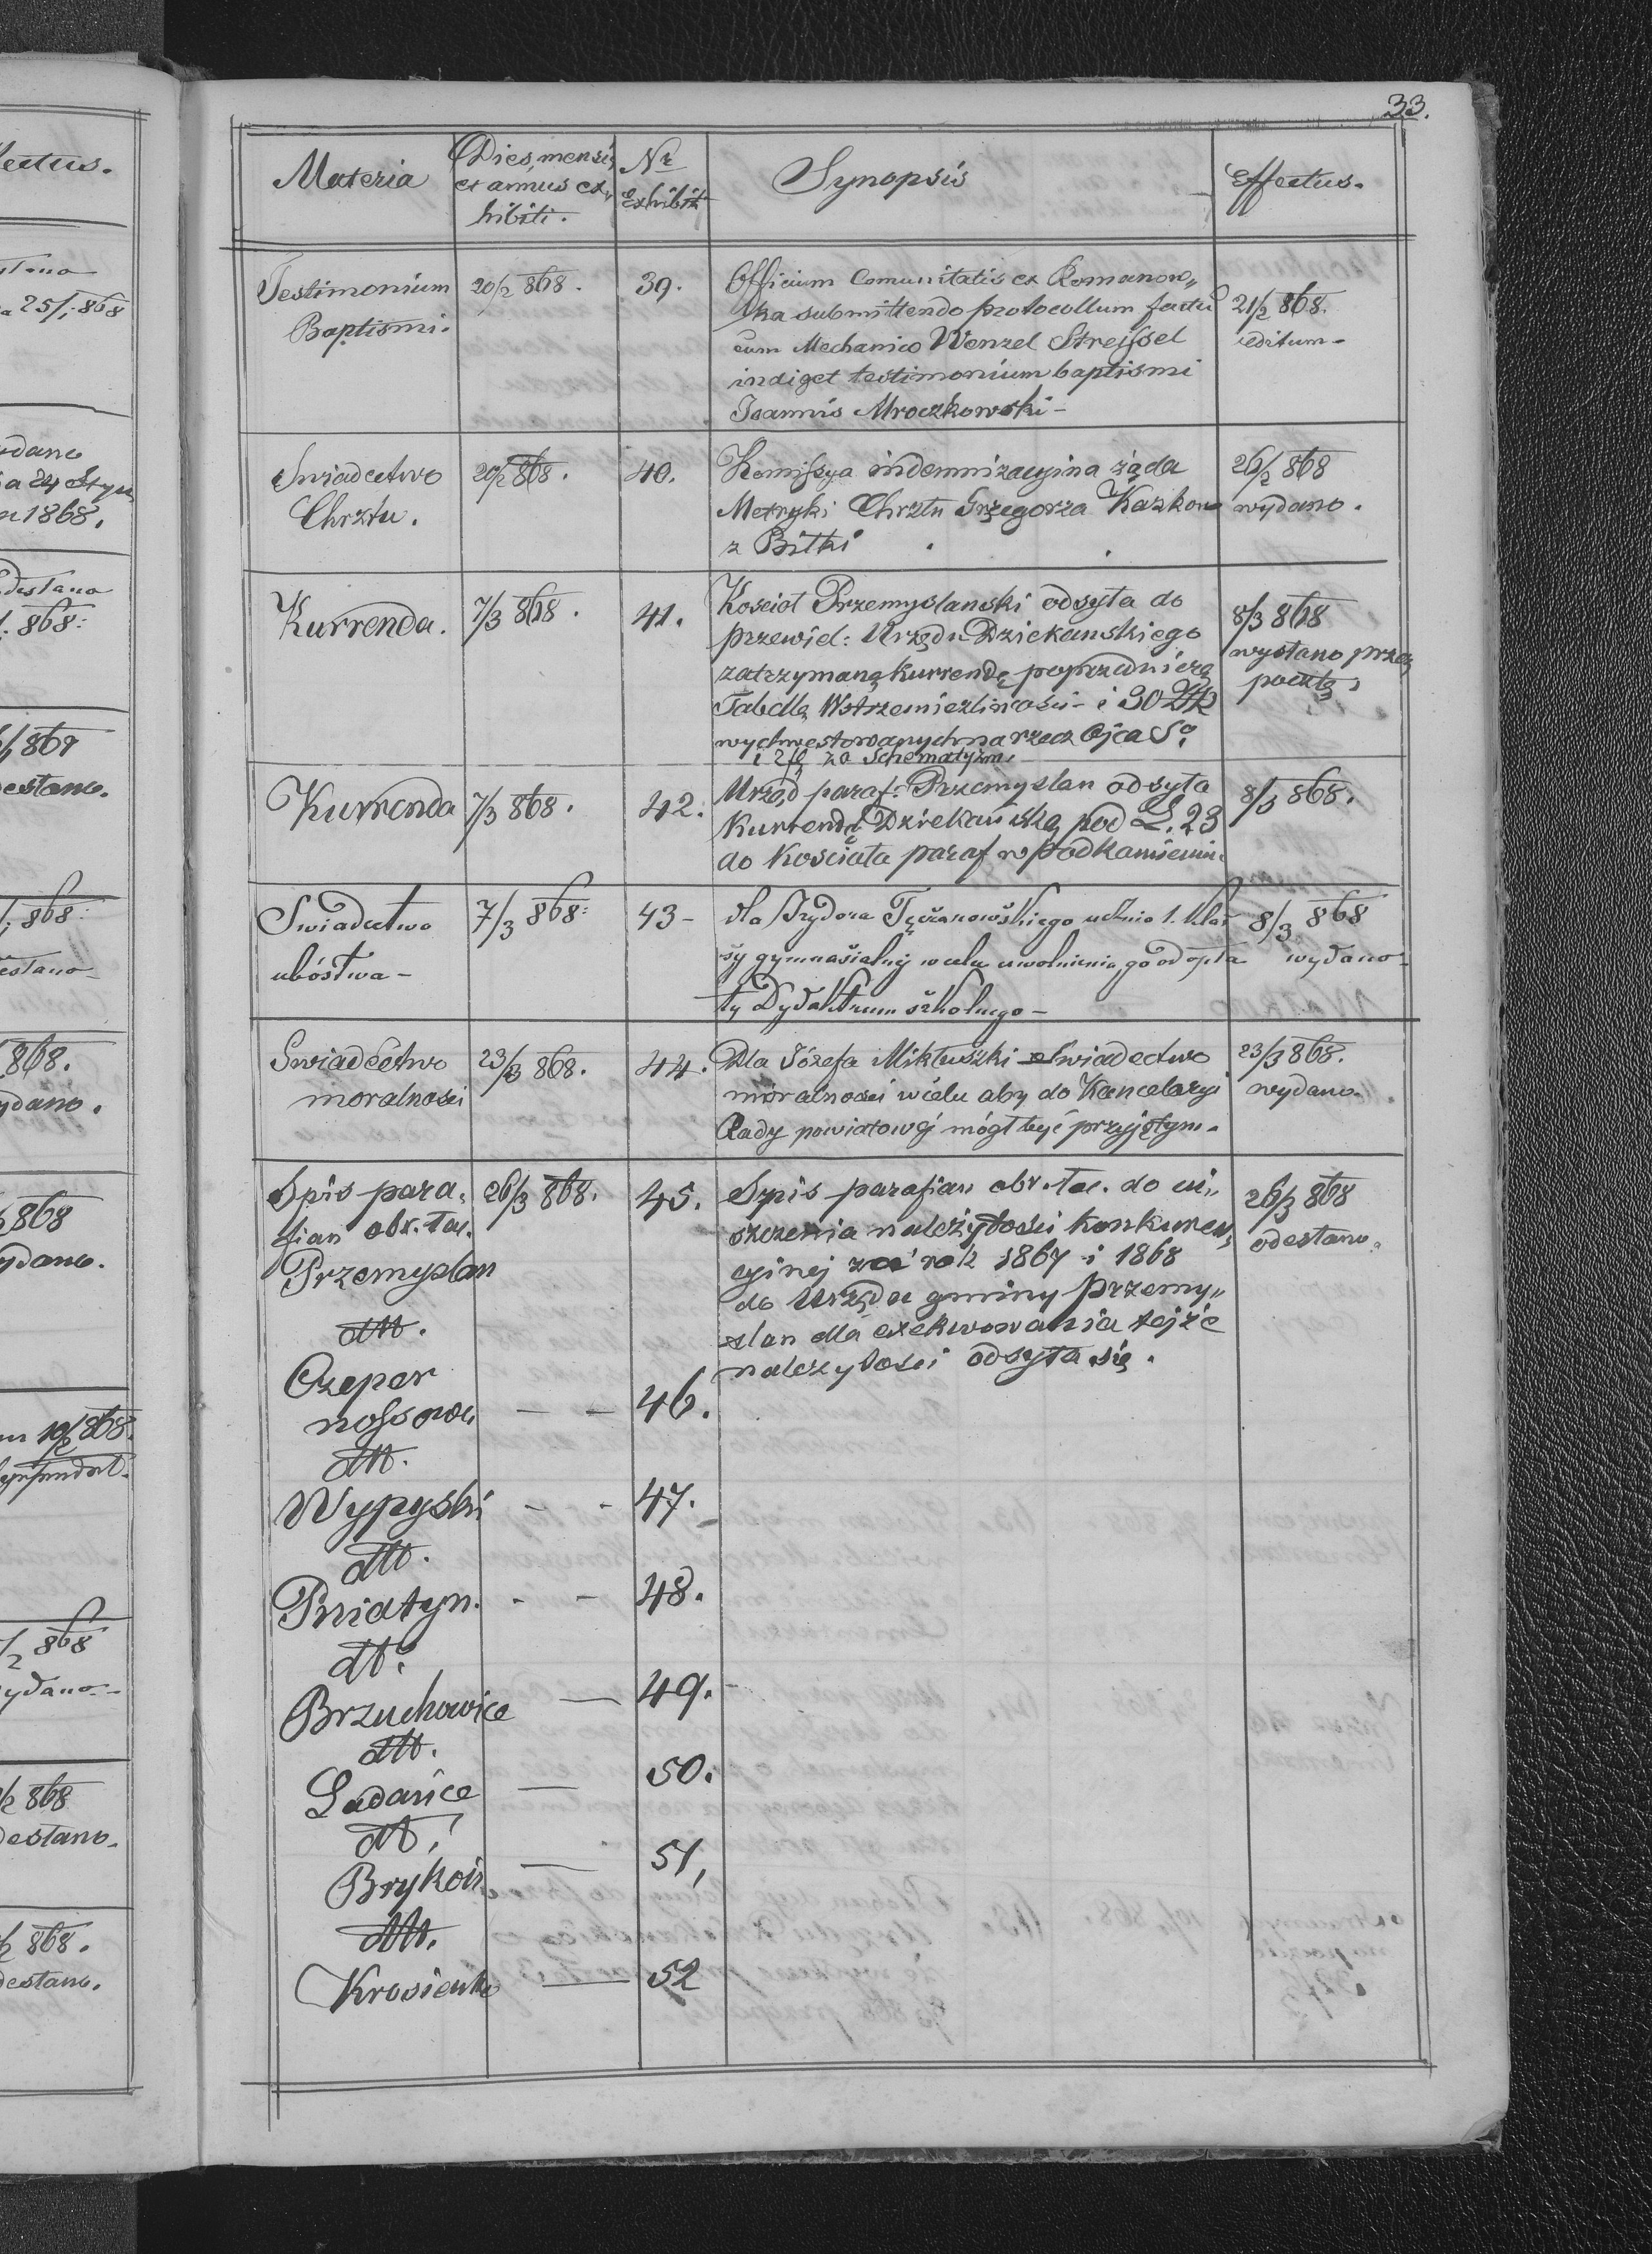 33.
Materia
Dies mensis
et annus ex„
hibiti.
Nr
Exhibiti
Synopsis
Effectus.
Testimonium
Baptismi.
20/2 868.
39.
Officium Comunitatis ex Romanow„
ka submittendo protocollum factu
cum Mechanico Wenzel Streissel
indiget testimonium baptismi
Joannis Mroczkowski -
21/2 868.
editum -
Swiadectwo
Chrztu.
20/2 868.
40.
Komissya indemnizacyjna żąda
Metryki Chrztu Grzegorza Kazkow
z Bitki
26/2 868
wydano.
Kurrenda.
7/3 868.
41.
Kosciol Przemyslanski odsyła do
przewiel: Urzędu Dziekanskiego
zatrzymaną kurrendę poprzedniczą
Tabellą Wstrzemiezliwości - i 30
na rzecz Ojca So
i za Schematyzm.
8/3 868
wysłano przez
pocztę,
Kurrenda
7/3 868.
42.
Urząd paraf: Przemyslan odsyła
Kurrendę Dziekańską pod L. 23
do Kosciola paraf w podkamieniu.
8/3 868.
Swiadectwo
ubóstwa -
7/3 868:
43 -
dla Izydora ucznia 1. klas
sy gymnasialnej w celu uwolnienia go od opła
ty Dydaktrum szkolnego -
8/3 868
wydano -
Swiadectwo
moralnosci
23/3 868.
44.
Dla Józefa Mikłuszki Swiadectwo
moralnosci w celu aby do Kancelaryi
Rady powiatowéj mógł być przyjętym.
23/3 868.
wydano.
Spis para„
fian obr. łac.
Przemyslan
26/3 868.
45.
Spis parafian obr. łac. do ui„
szczenia należytości konkuren„
cyjnej za rok 1867 i 1868
do Urzędu gminy Przemy„
slan dla exekwowania tejże
należytości odsyła się.
26/3 868
odesłano.
dtto.
Czeper
nossow
— —
46.
dtto.
Wypyski
- -
47.
dtto.
Pniatyn.
- -
48.
dtto.
Brzuchowice
—
49.
dtto.
Ladańce
—
50.
dtto.
Brykoń
—
51,
dtto.
Krosienko
—
52